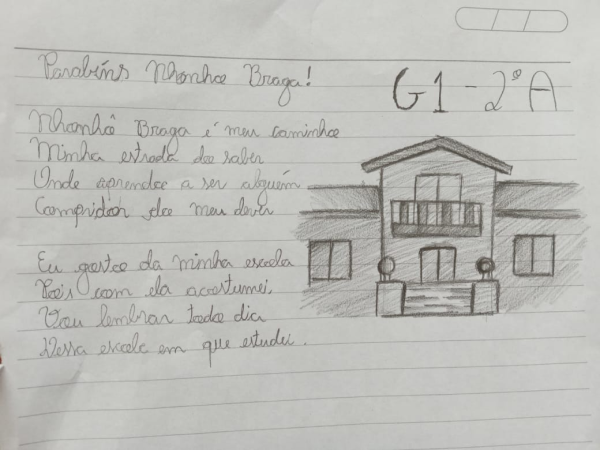 Parabéns Nhonhoe Braga!
G1 - 2º A
Nhonhô Braga é meu caminho
Minha estrada do saber
Onde aprendo a ser alguém
Compridor do meu dever
Eu gosto da minha escola
Pois com ela acostumei,
Vou lembrar todo dia
Dessa escola em que estudei.